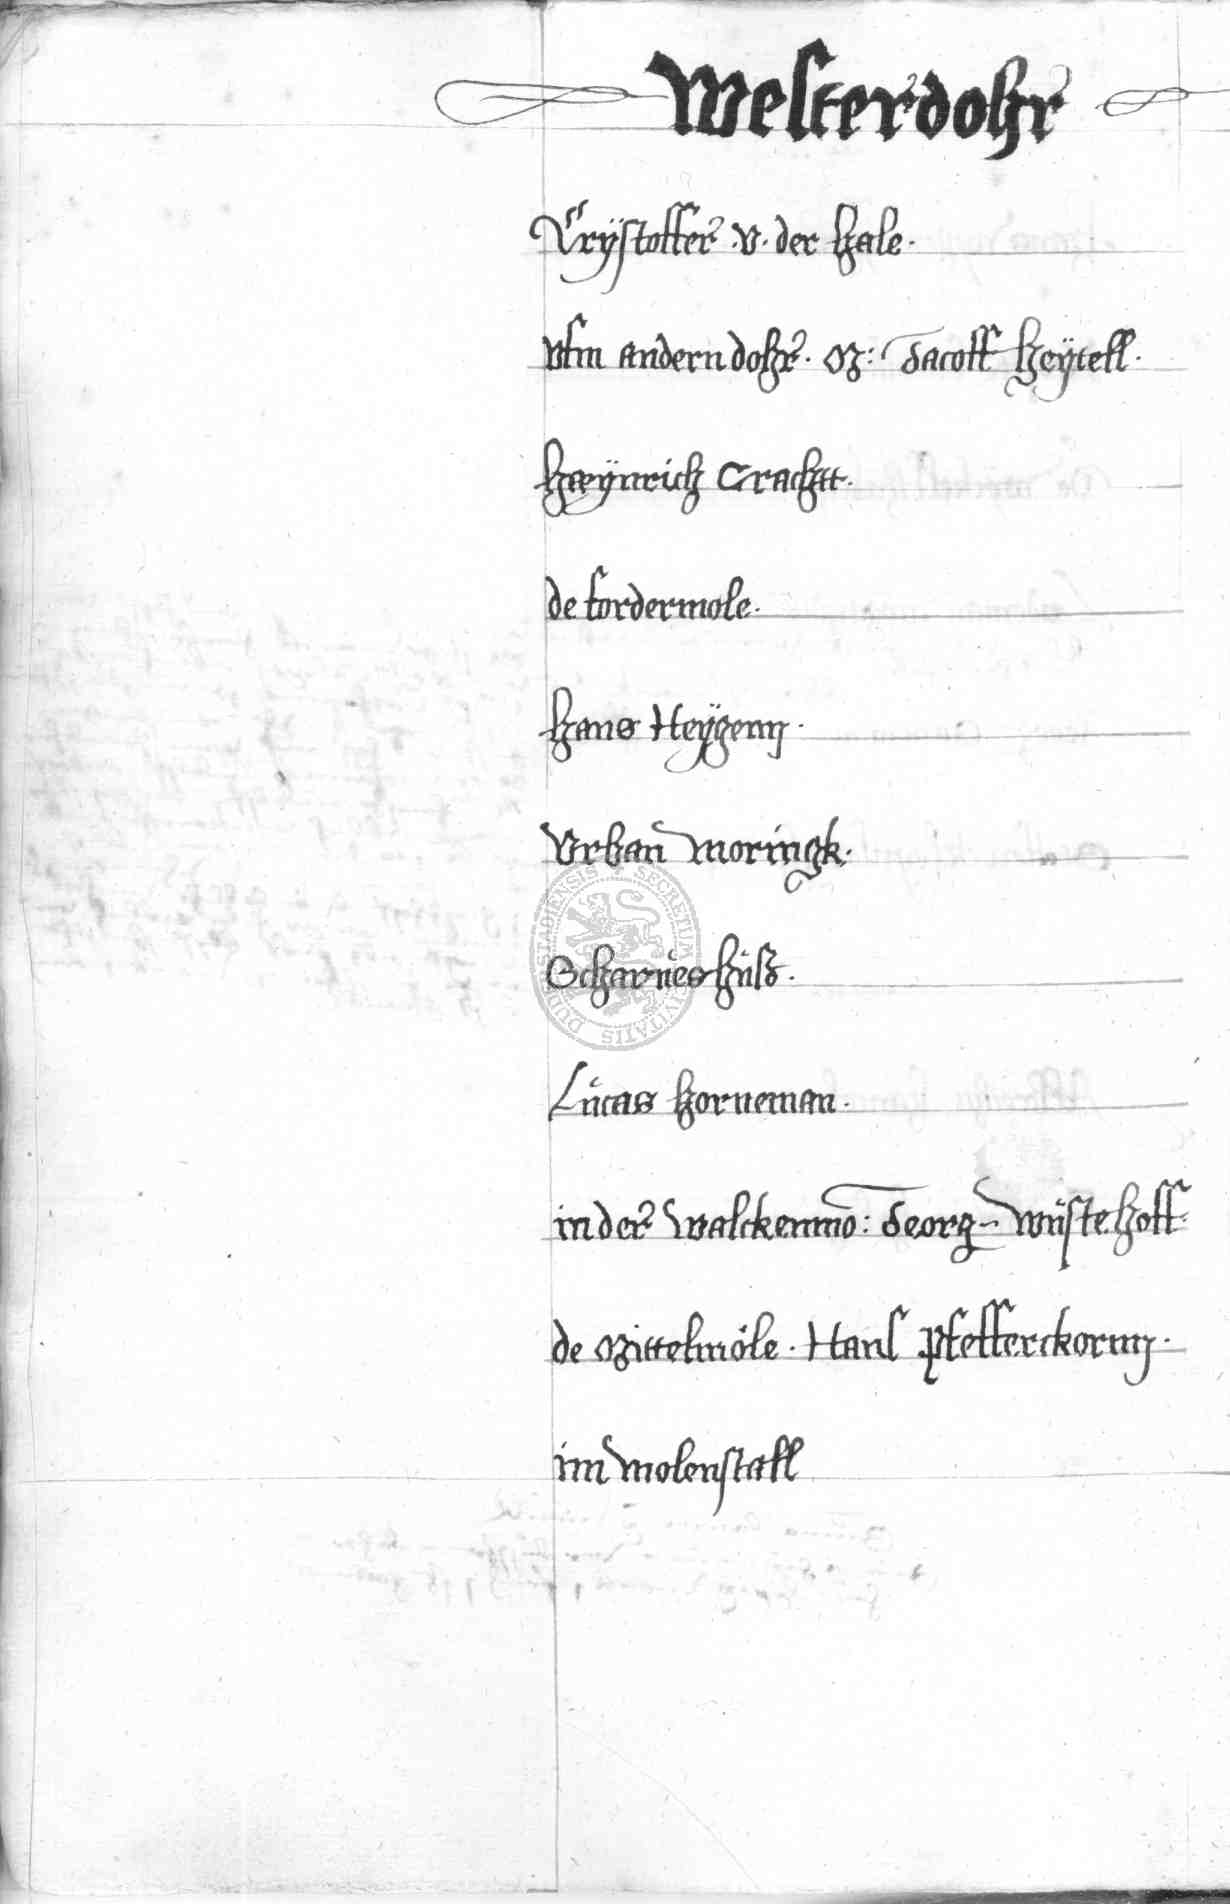 Westerdohr
Crÿstoffer .v. der Hale.
vfm andern dohr. M: Jacoff Heÿtell.
Heÿnrich Trachtt.
de fordermole.
Hans Heÿgenn.
Vrban Moringk.
Scharnes Huß.
Lucas Horneman.
in der Walckenmo: Georg Wüstehoff.
de Mittelmöle. Hans Pfefferckornn.
im Molenstall
SECRETUM CIVITATIS DUDERSTADIENSIS